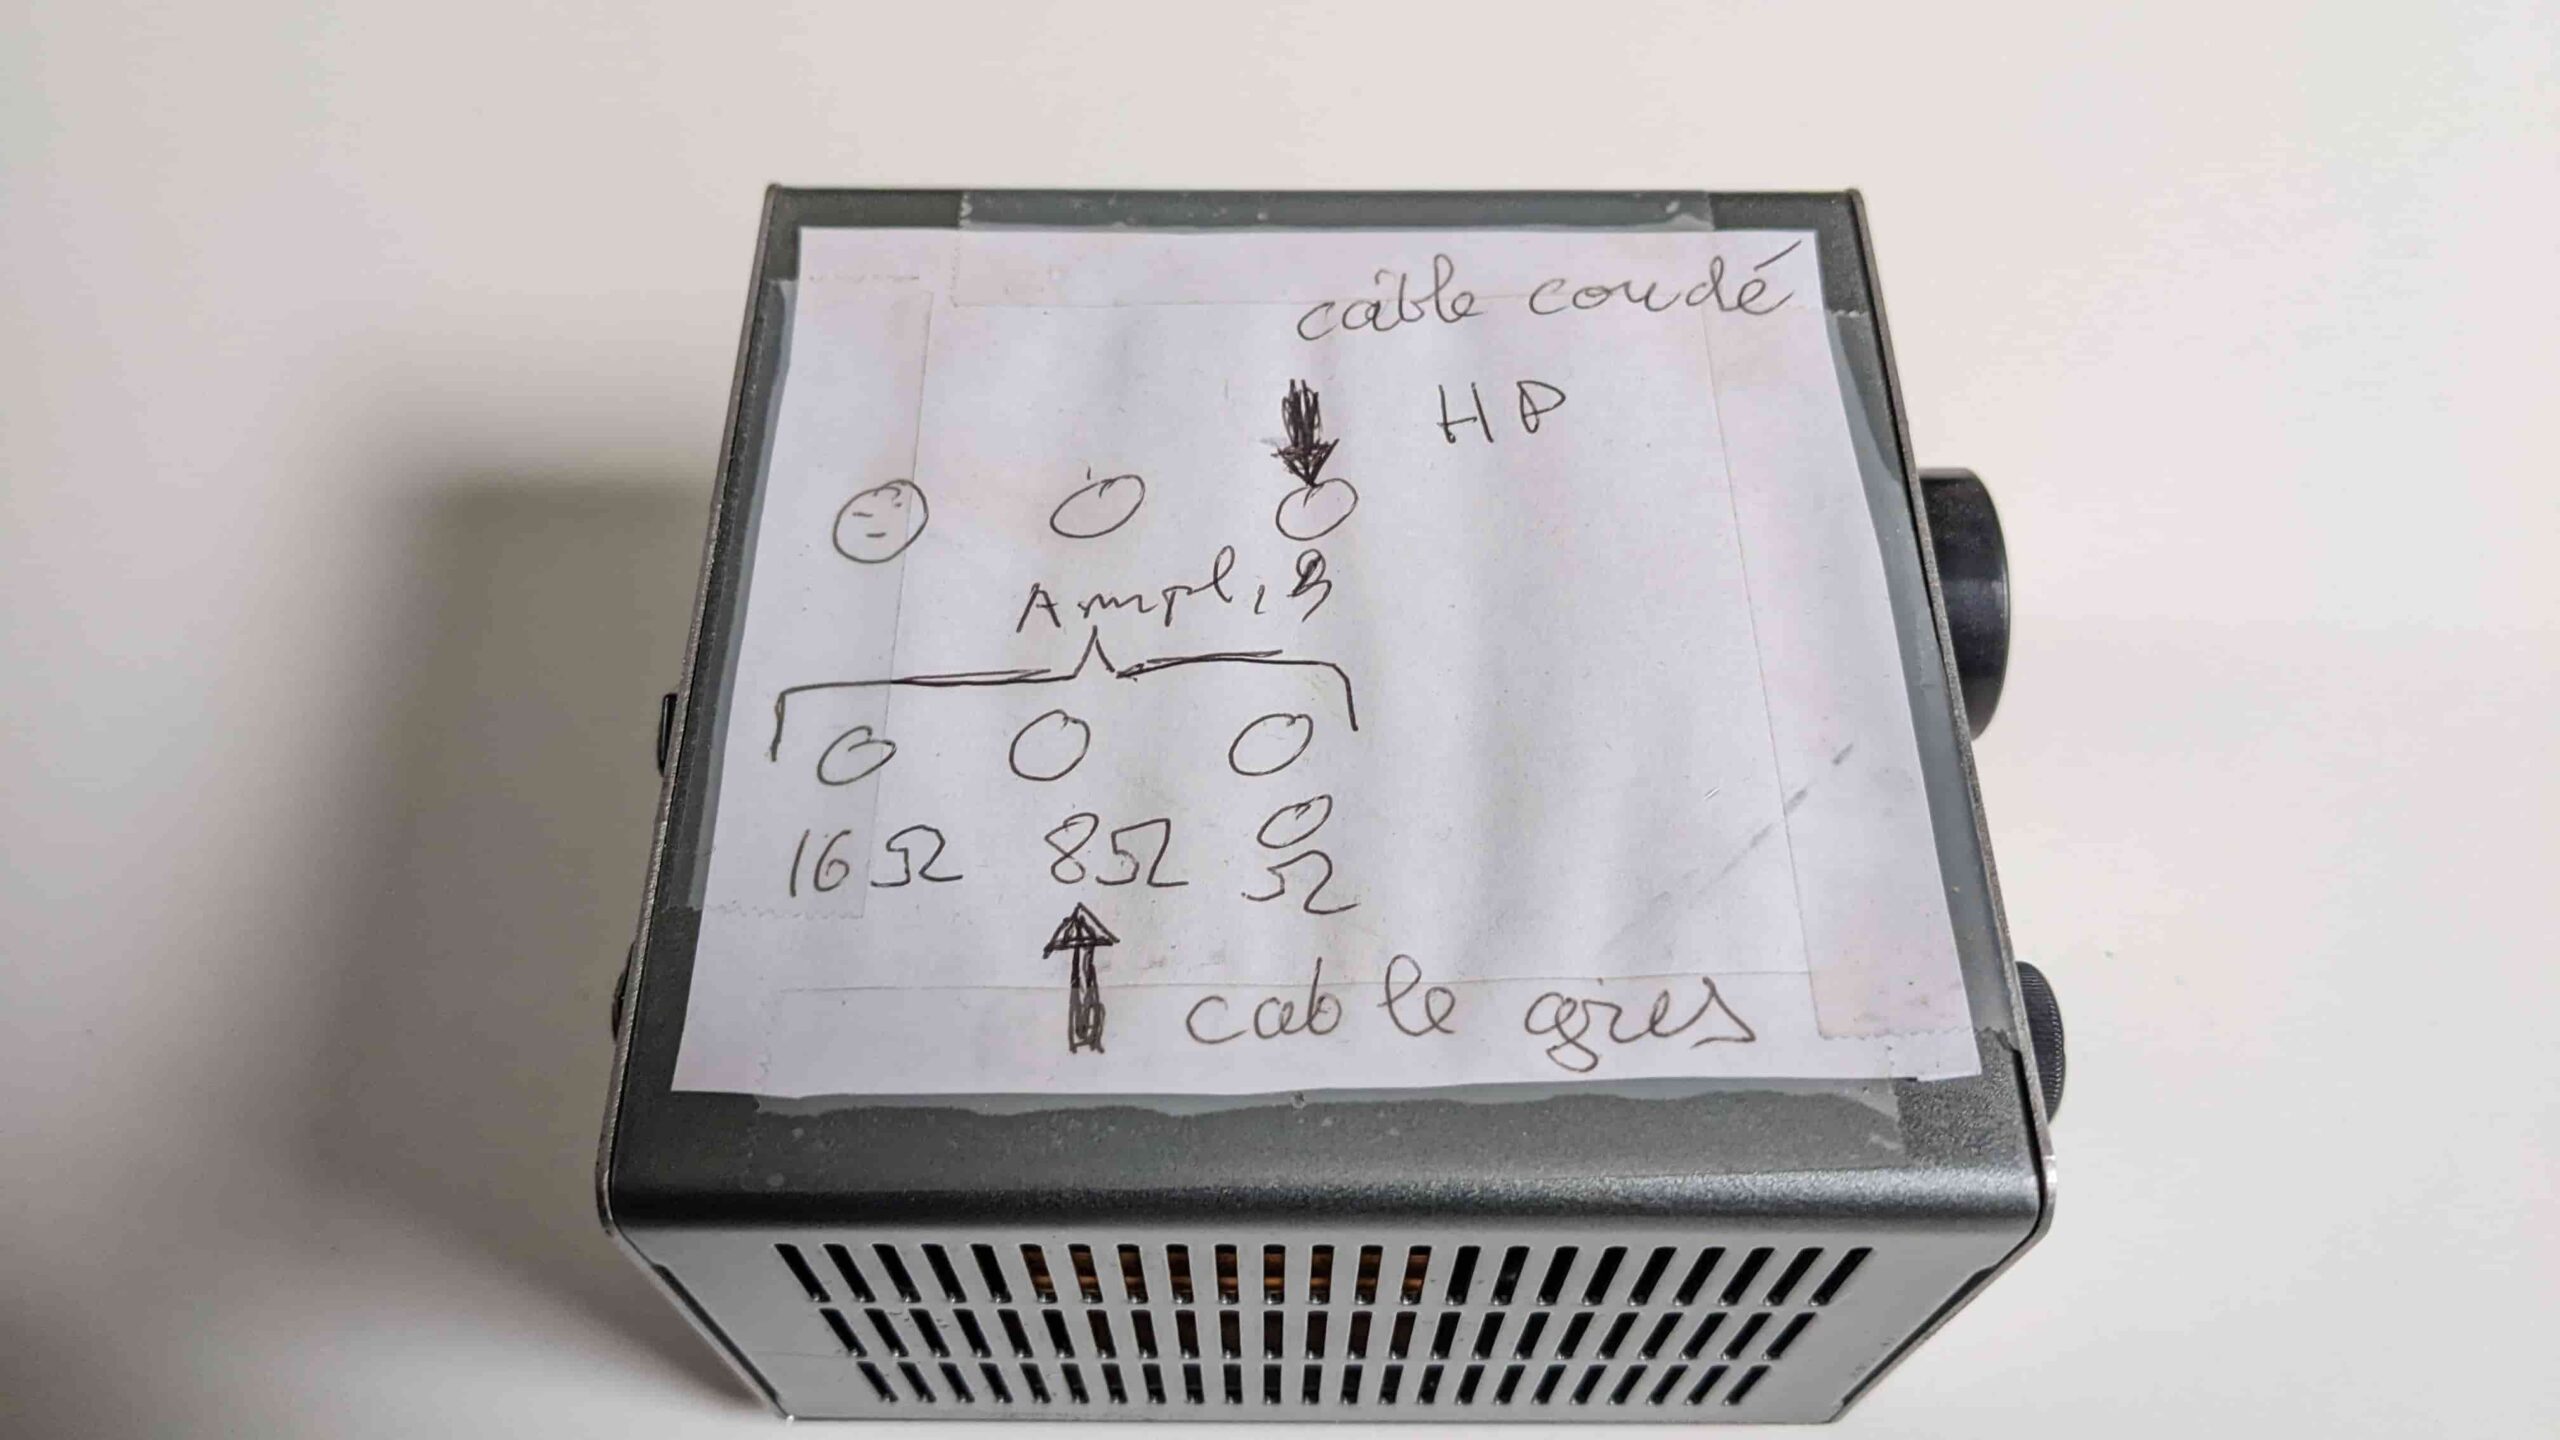 câble coudé
HP
Ampli
16 Ω 8Ω Ω
cable gris